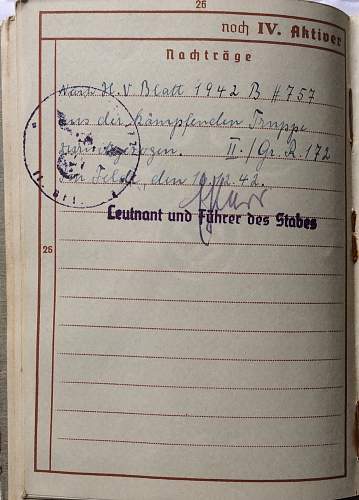 26
noch IV. Aktiver
Nachträge
Nach H.V Blatt 1942 B # 757
aus der kämpfenden Truppe
zurückgezogen. II./Gr. R. 172
Im Felde, den .42.
Leutnant und Führer des Stabes
25